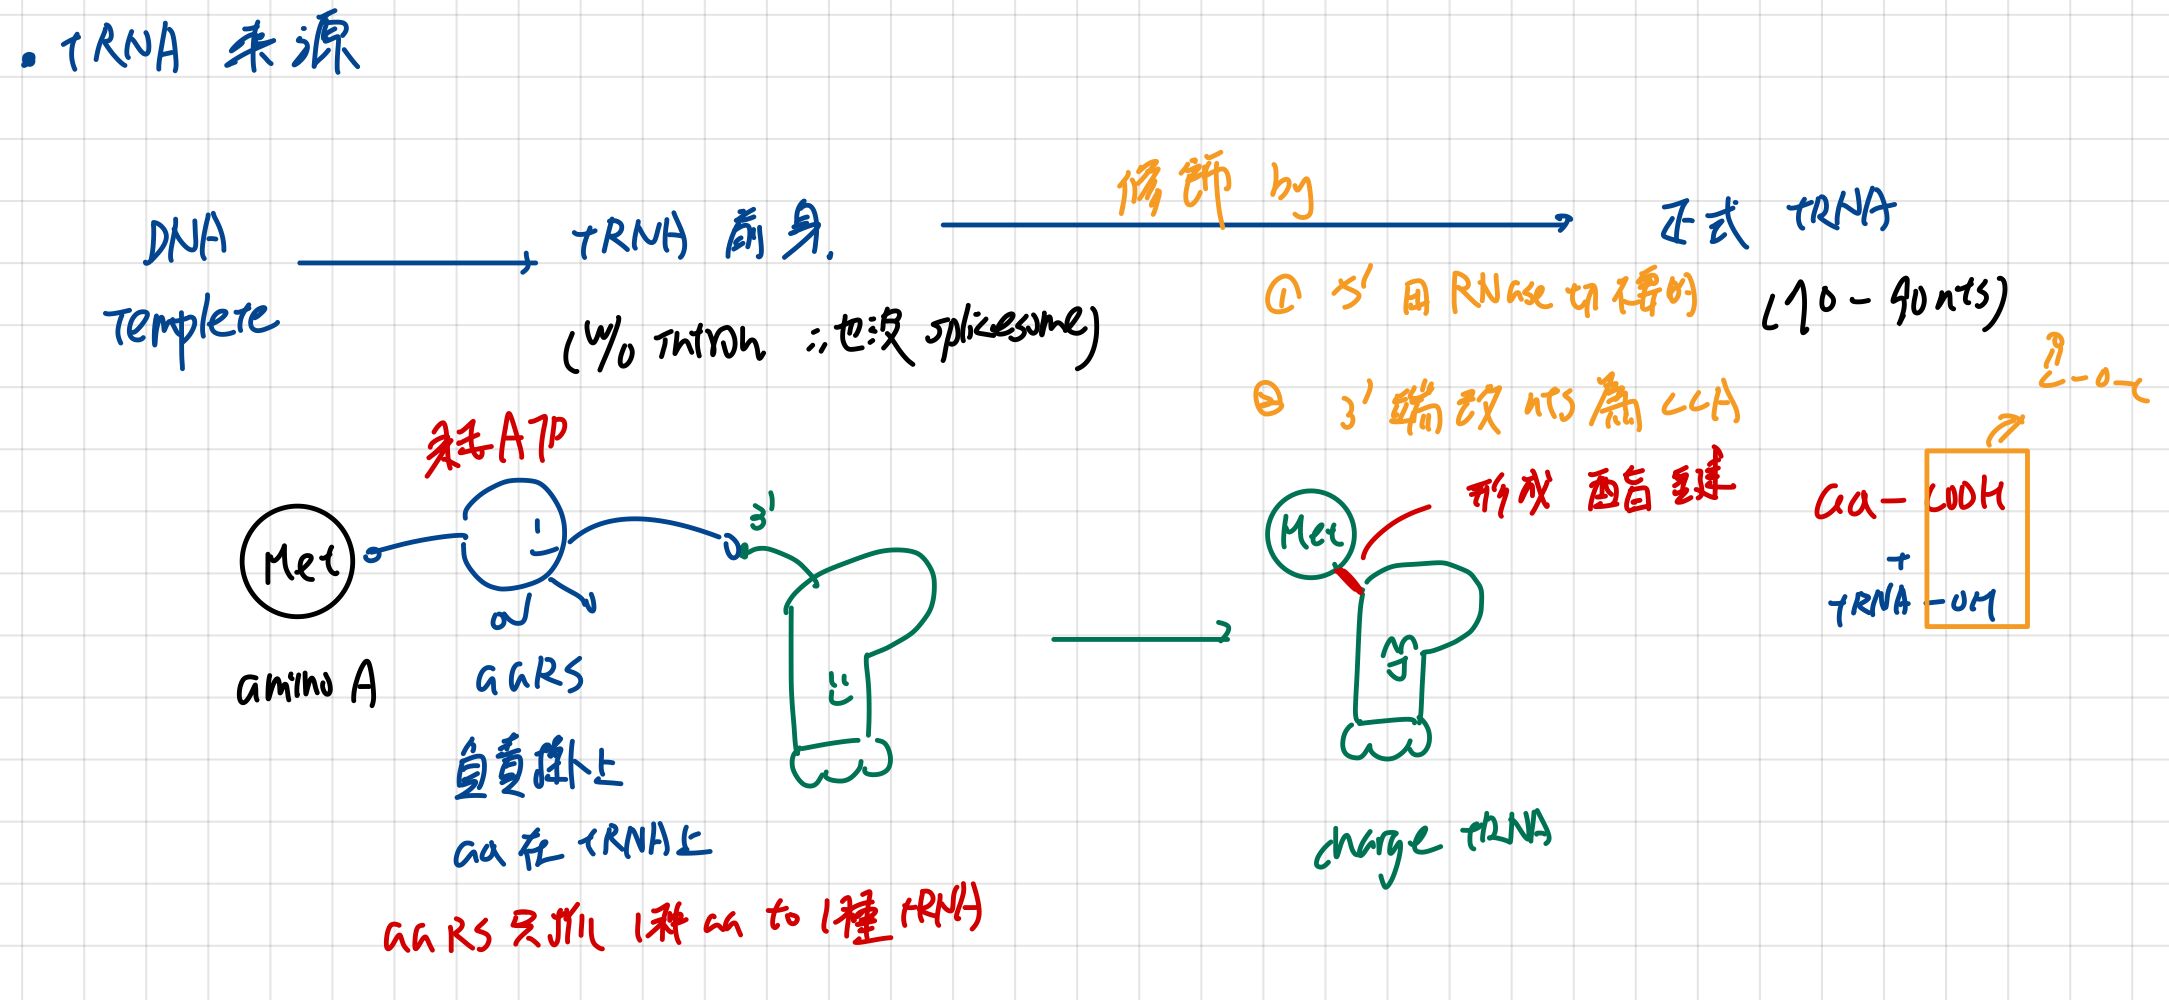 • tRNA 来源
修飾 by
DNA
Templete
tRNA 前身
正式 tRNA
(w/o Intron ∴也沒 splicesome)
① 5' 用 RNase 切不要的
(70-90nts)
② 3'端改 nts 為 CCA
耗 ATP
Met
3'
Met
形成 酯鍵
aa-COOH
+
tRNA-OH
amino A
aaRS
負責掛上
aa 在 tRNA上
charge tRNA
aaRS 只抓 1種 aa to 1種 tRNA